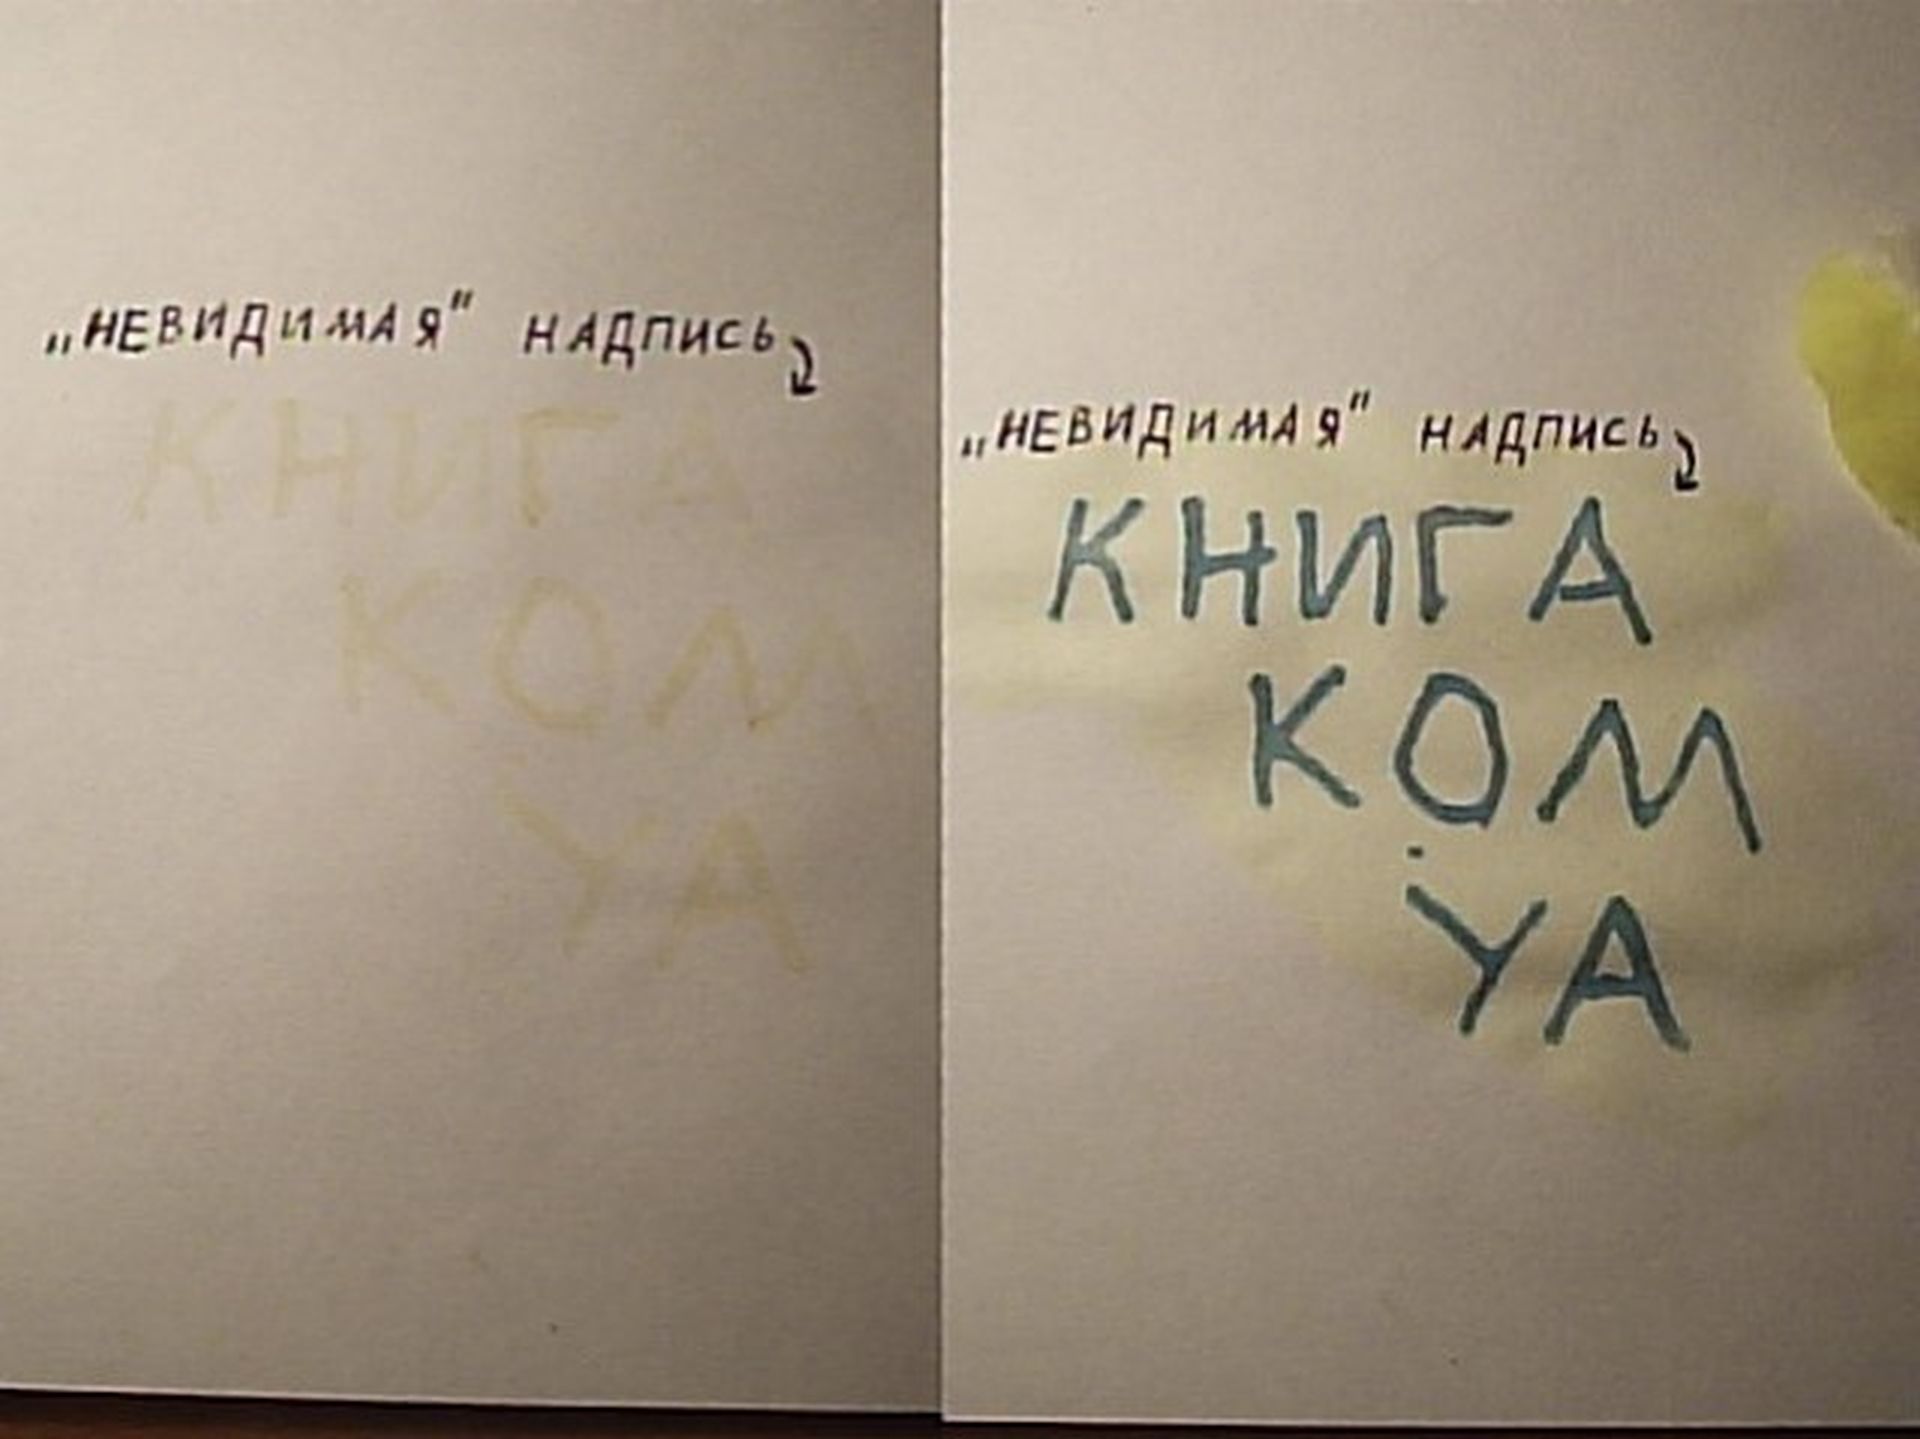 „НЕВИДИМАЯ" НАДПИСЬ
КНИГА
КОМ
УА
„НЕВИДИМАЯ" НАДПИСЬ
КНИГА
КОМ
УА